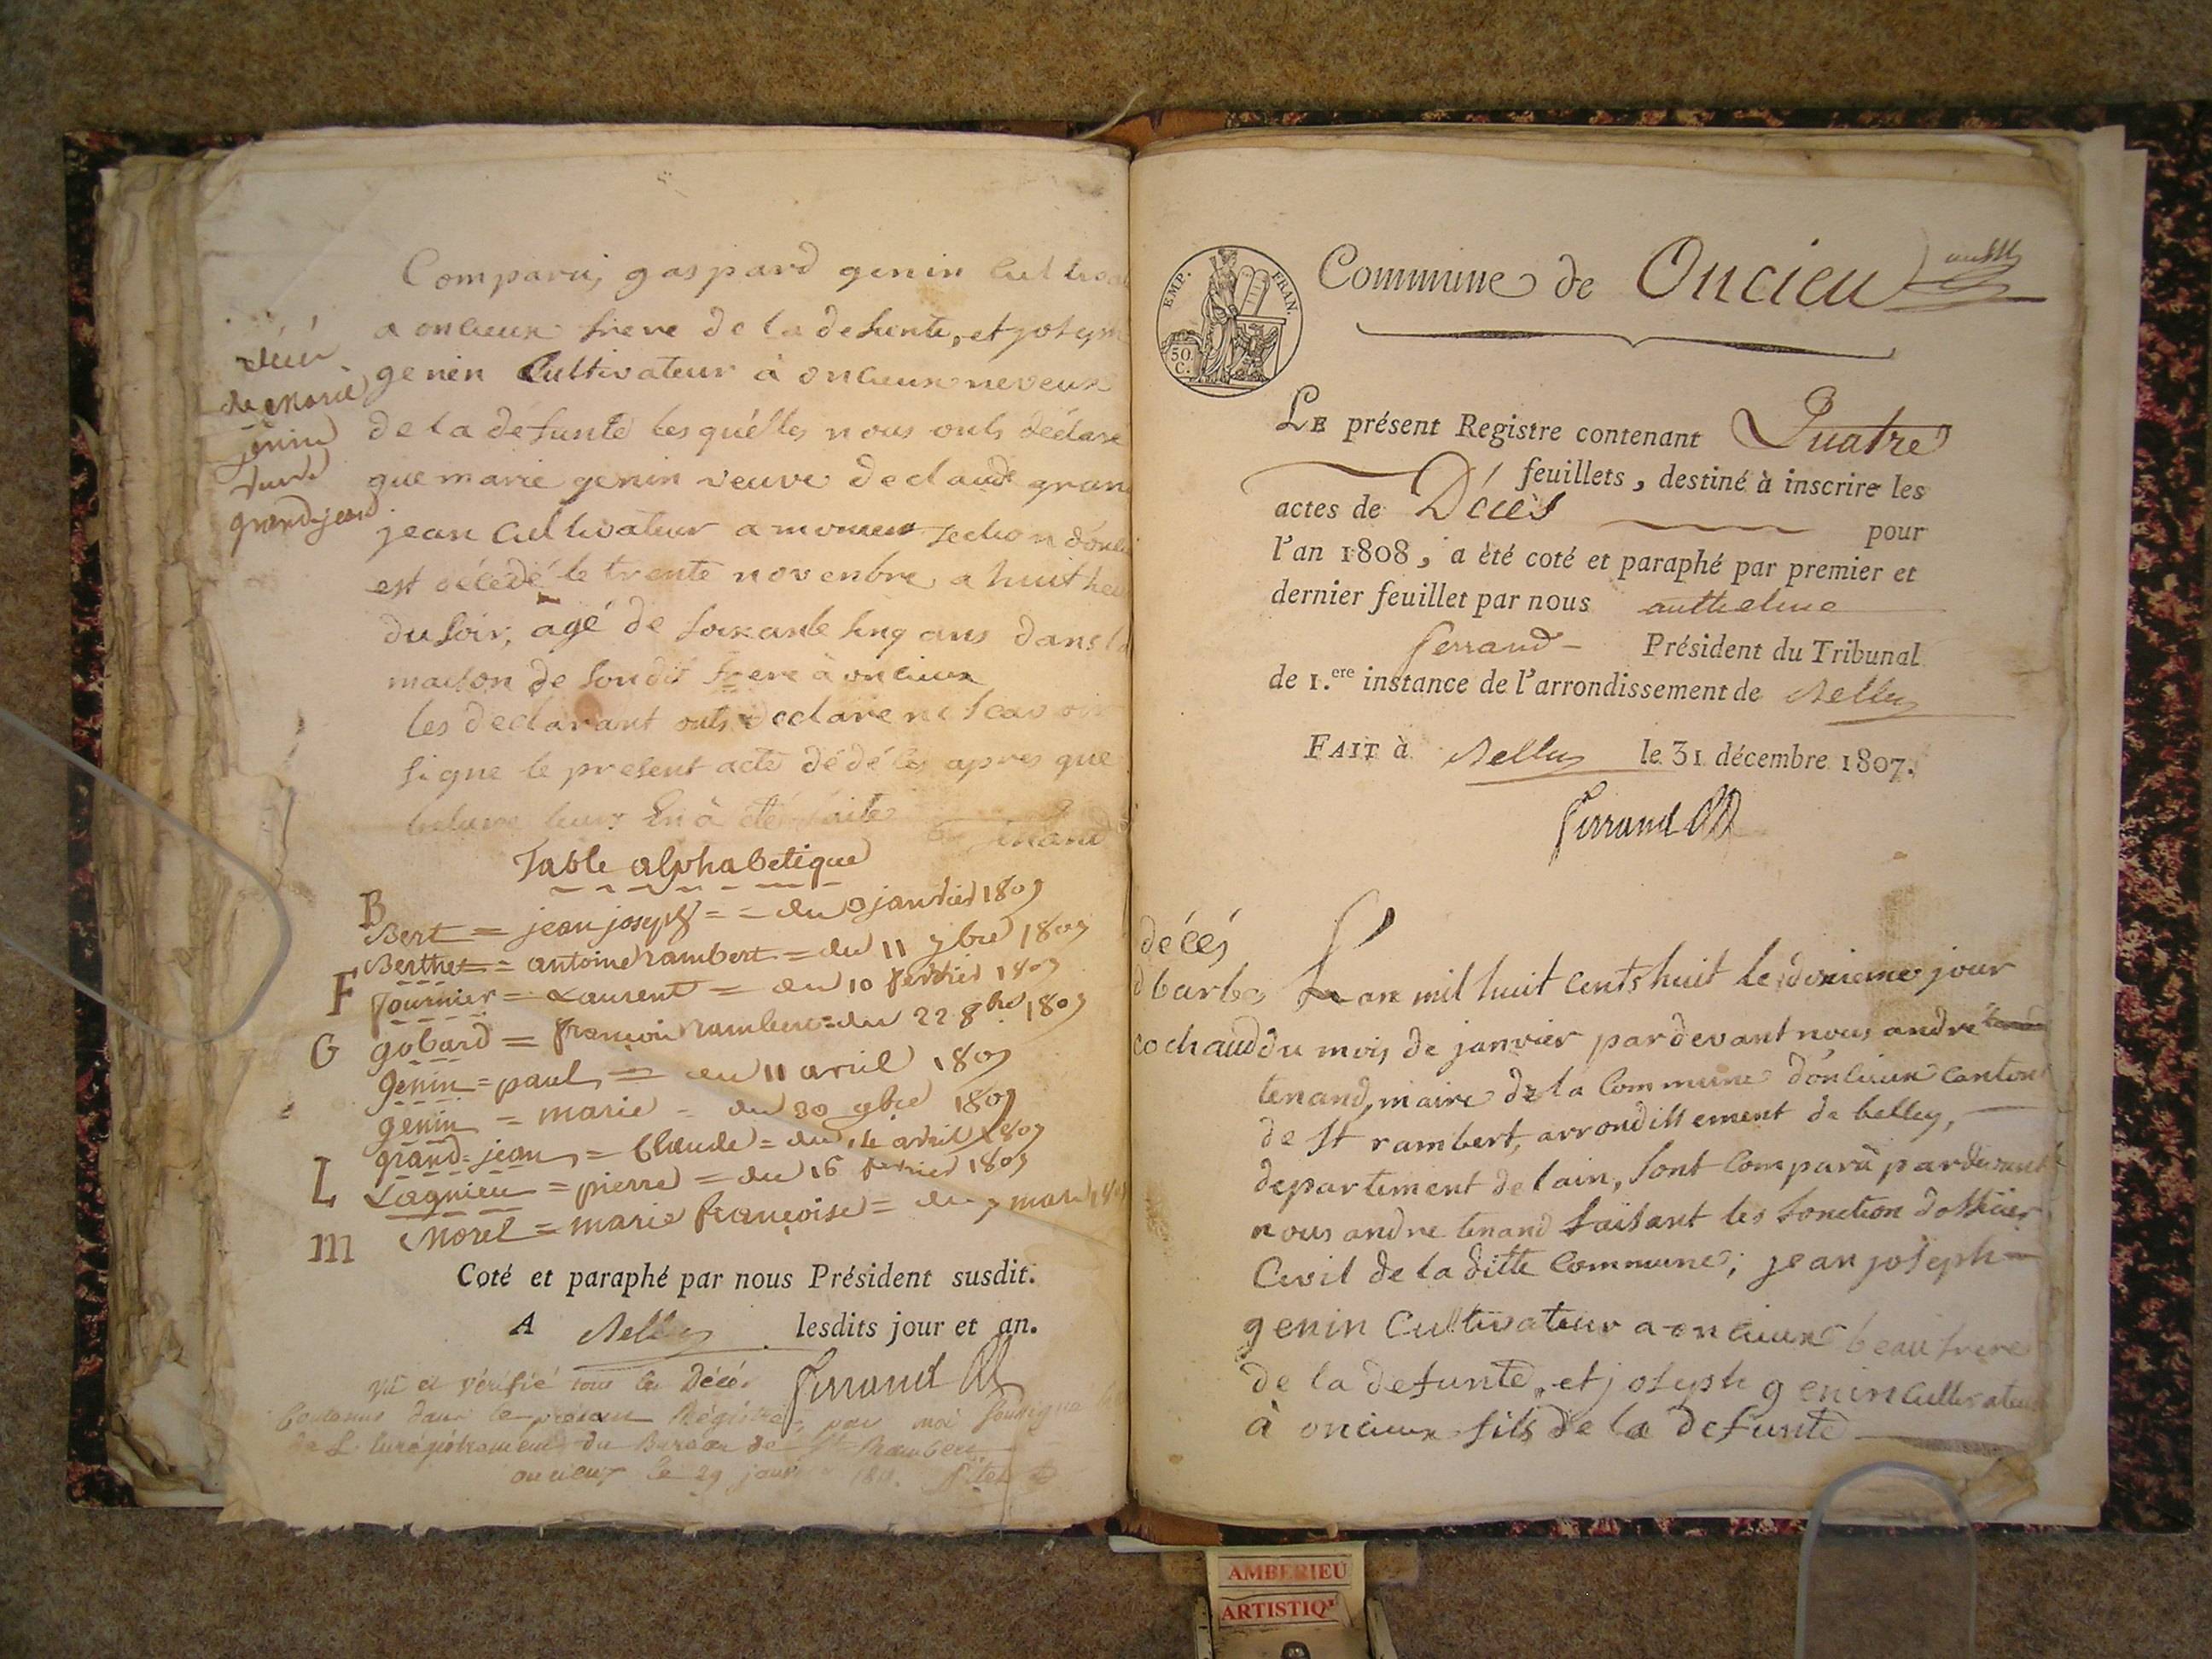 Comparu, gaspard genin Cultiva
a oncieux frere de la defunte, et joseph
genin Cultivateur à oncieux neveux
de la defunte lesquélles nous onts déclare
que marie genin veuve de claude gran
jean Cultivateur a section donci
est décédé le trente novenbre a huit heu
du soir, agé de soixante sinq ans dans la
maison de sondit frere à oncieux
les declarant onts declare ne scavoir
signe le present acte dédécès apres que
lecture leurs En à été faite tenand
décé
de Marie
jenin
veuve
grand-jean
Table alphabetique
B
Bert = jean joseph = = du 9 janvier 1807
Berthet = antoine rambert = du 11 7bre 1807
F fournier = Laurent = du 10 fevrier 1807
G gobard = françois rambert = du 22 8bre 1807
genin = paul = du 11 avril 1807
genin = marie = du 30 9bre 1807
grand-jean = Claude = du 14 avril 1807
L Lagnieu = pierre = du 16 fevrier 1807
m Morel = marie françoise = du 7 mars 180
Coté et paraphé par nous Président susdit.
A Belley lesdits jour et an.
Ferrand
Vû et vérifié tous les Décés
Contenus dans le présent Régistre, par moi soussigné
de L'enrégistrement du Bureau de St Rambert
oncieux le 29 janvier
EMP. FRAN.
50 C.
Commune de Oncieu
LE présent Registre contenant Quatre
feuillets, destiné à inscrire les
actes de Décès pour
l'an 1808, a été coté et paraphé par premier et
dernier feuillet par nous anthelme
Ferrand Président du Tribunal
de 1.ere instance de l'arrondissement de Belley
FAIT à Belley le 31 décembre 1807.
Ferrand
décés
d barbe
cochaud
Lan mil huit cents huit le dexieme jour
du mois de janvier pardevant nous andre
tenand, maire de la Commune d'oncieux canton
de st rambert, arrondissement de belley,
departement de lain, sont Comparû pardevant
nous andre tenand faisant les fonction dofficier
Civil de la ditte Commune; jean joseph
genin Cultivateur a oncieux beau frere
de la defunte, et joseph genin Cultivateur
à oncieux fils de la defunte
AMBERIEU
ARTISTIQ